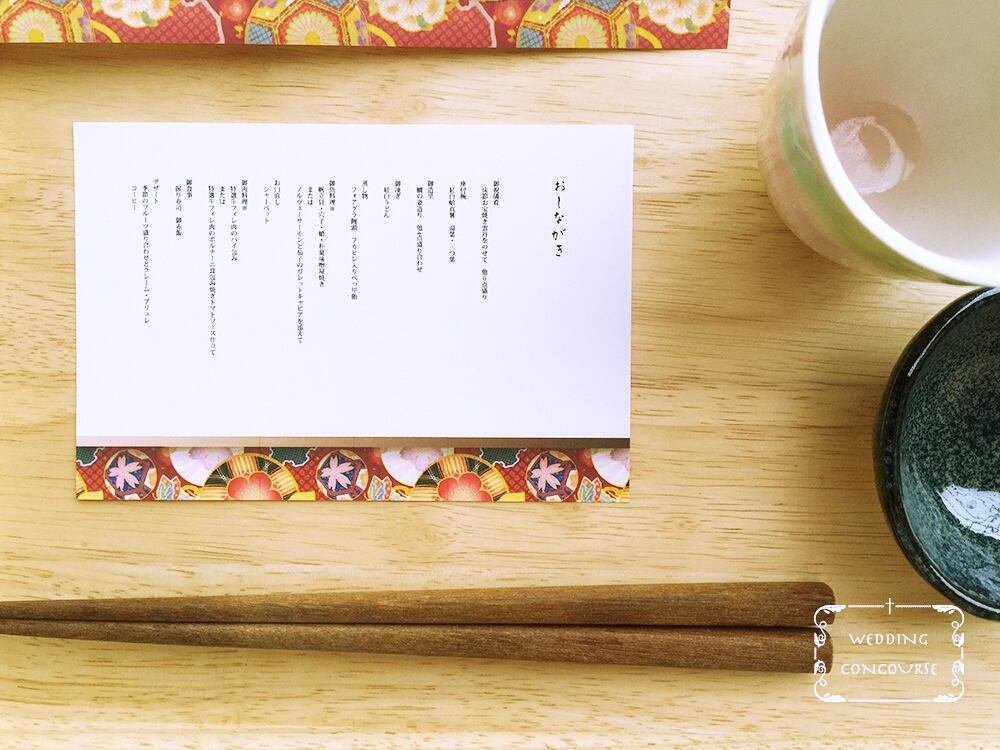 おしながき
御祝儀肴
抹茶お宝焼き雲丹をのせて　他６点盛り
座付椀
紅白蛤真薯　湯葉・三つ葉
御造里
鯛の姿造り　他６点盛り合わせ
御凌ぎ
紅白うどん
蒸し物
フォアグラ饅頭　フカヒレ入りべっ甲餡
御魚料理※
帆立貝・穴子・蛸・朴葉味噌屋焼き
または
ノルウェーサーモンと茄子のガレットキャビアを添えて
お口直し
シャーベット
御肉料理※
特選牛フィレ肉のパイ包み
または
特選牛フィレ肉のポルチーニ茸包み焼きトマトソース仕立て
御食事
握り寿司　御赤飯
デザート
季節のフルーツ盛り合わせとクレーム・ブリュレ
コーヒー
WEDDING
CONCOURSE